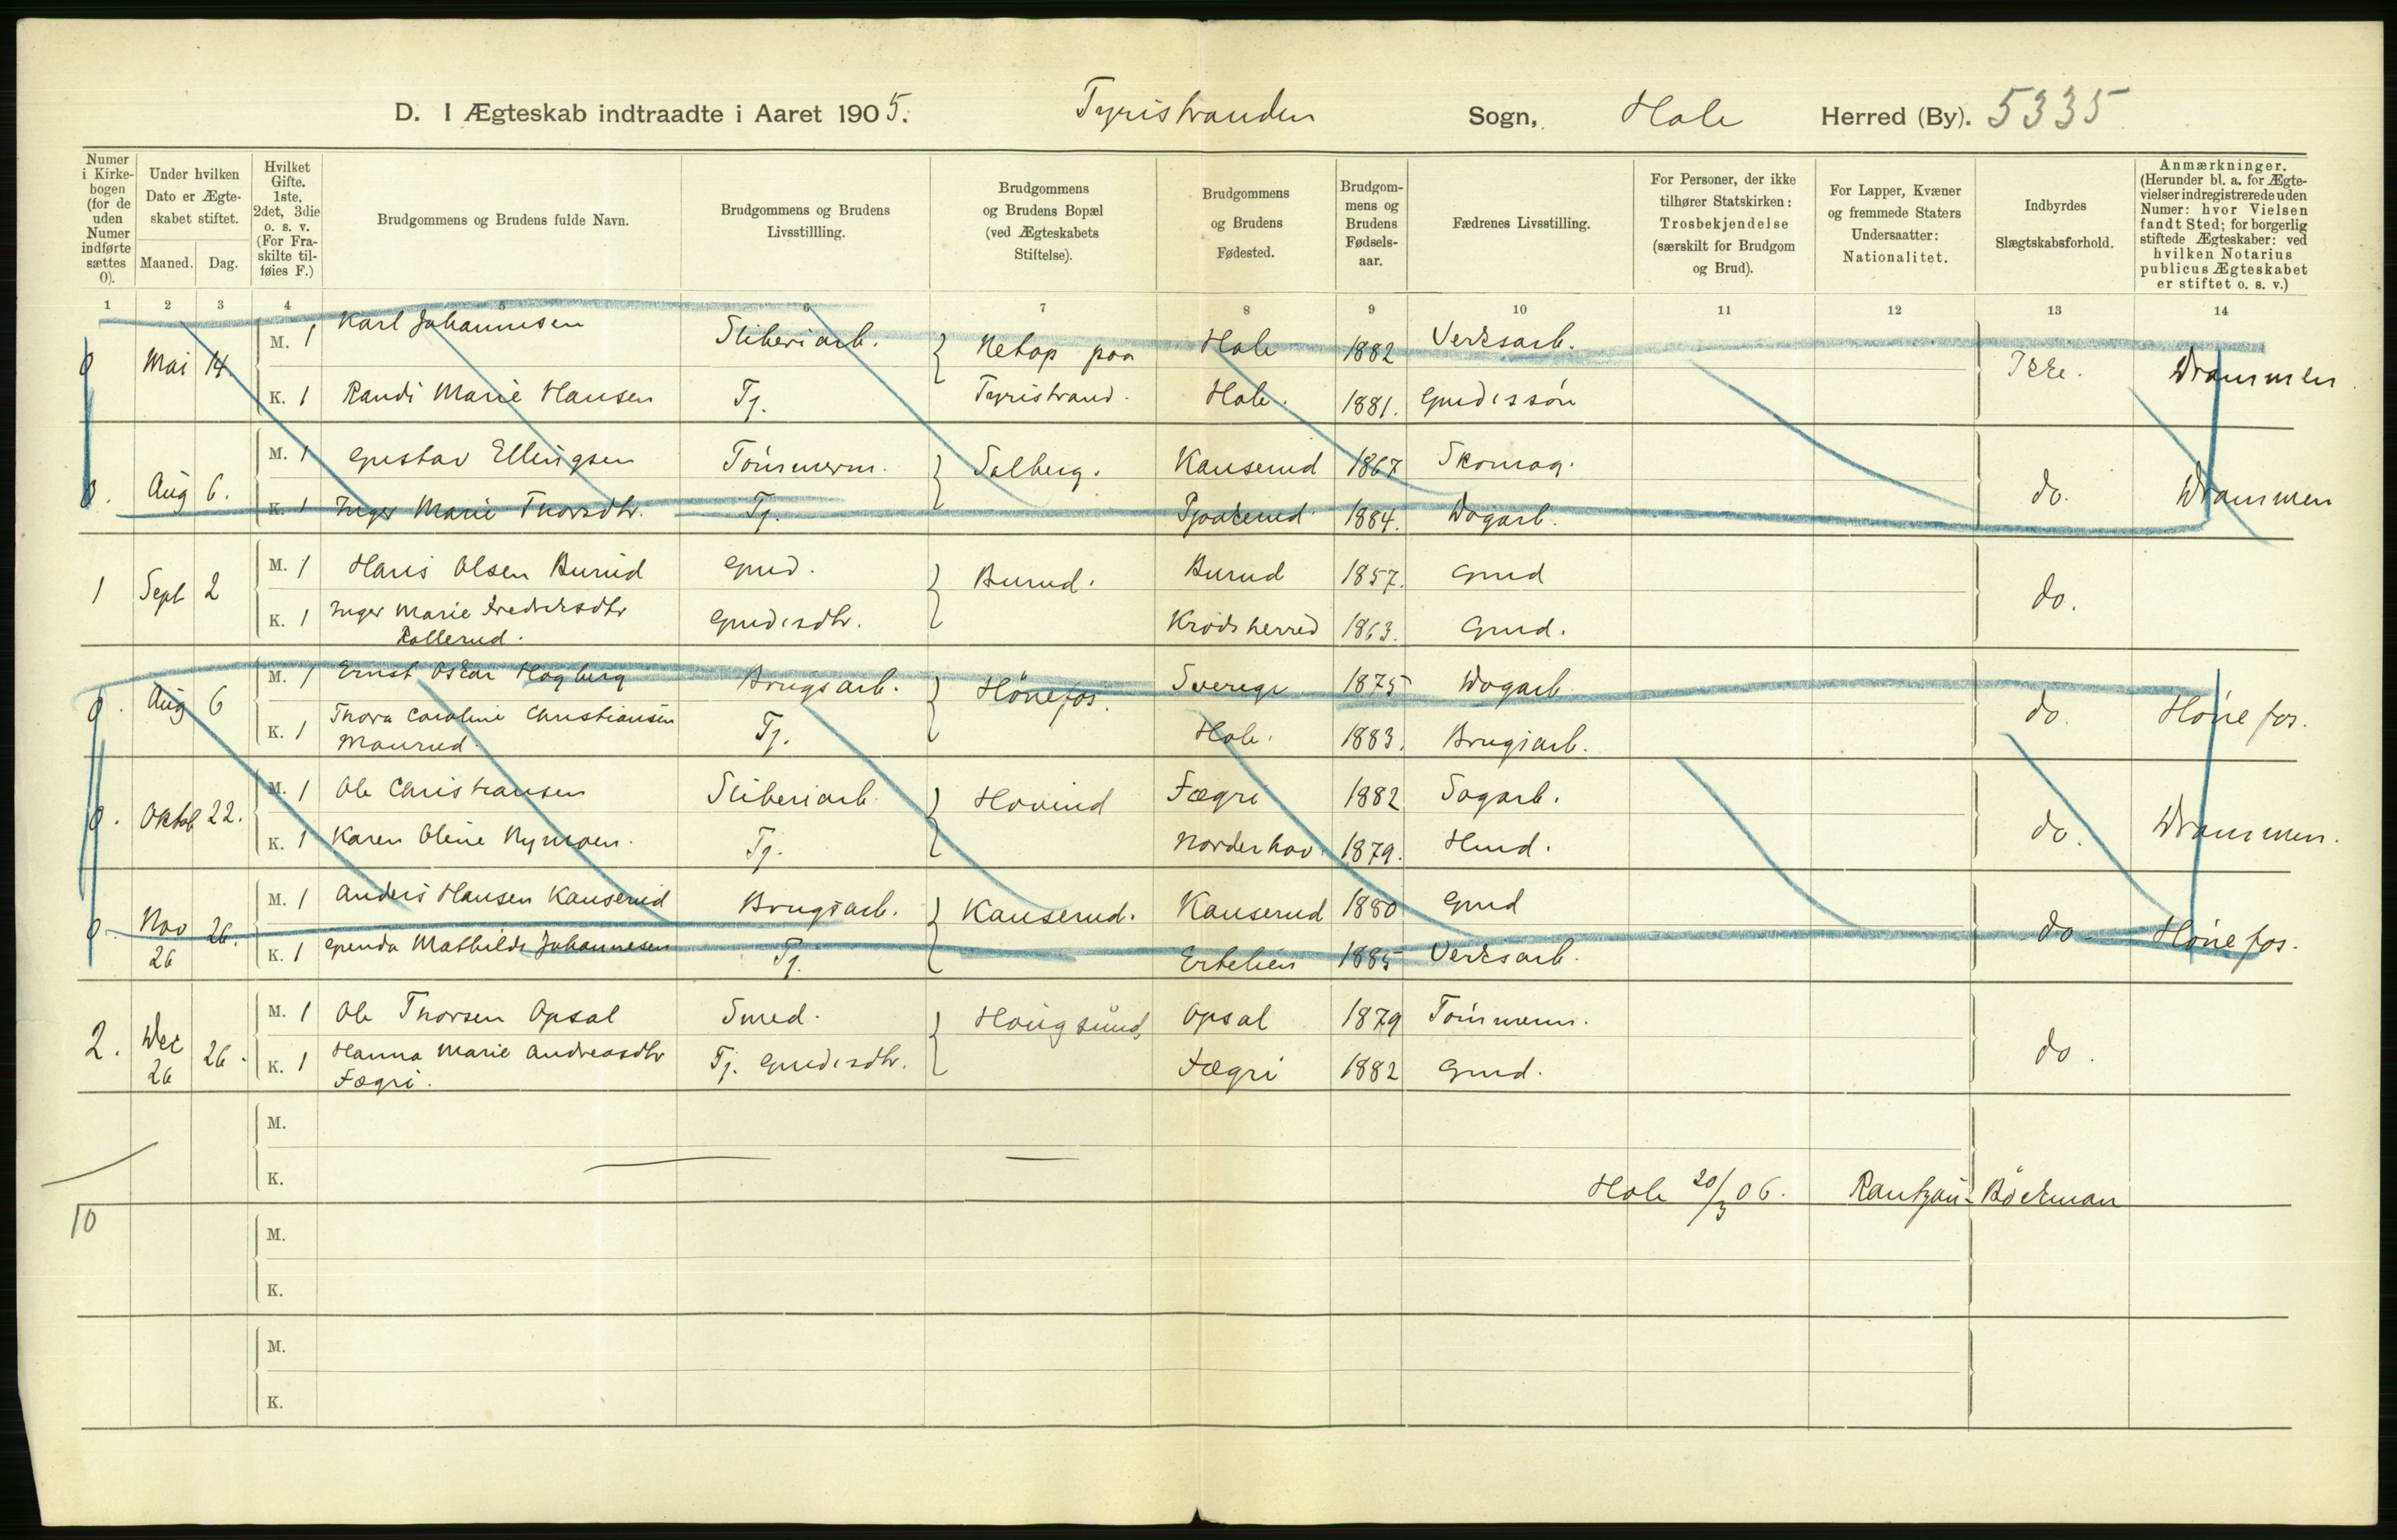 D. I Ægteskab indtraadte i Aaret 1905. Tyristranden Sogn, Hole Herred (By). 5335
Numer i Kirkebogen (for de uden Numer indførte sættes 0).
Under hvilken Dato er Ægteskabet stiftet.
Maaned. Dag.
Hvilket Gifte. 1ste, 2det, 3die o. s. v. (For Fraskilte tilføies F.)
Brudgommens og Brudens fulde Navn.
Brudgommens og Brudens Livsstillling.
Brudgommens og Brudens Bopæl (ved Ægteskabets Stiftelse).
Brudgommens og Brudens Fødested.
Brudgommens og Brudens Fødselsaar.
Fædrenes Livsstilling.
For Personer, der ikke tilhører Statskirken: Trosbekjendelse (særskilt for Brudgom og Brud).
For Lapper, Kvæner og fremmede Staters Undersaatter: Nationalitet.
Indbyrdes Slægtskabsforhold.
Anmærkninger. (Herunder bl. a. for Ægtevielser indregistrerede uden Numer: hvor Vielsen fandt Sted; for borgerlig stiftede Ægteskaber: ved hvilken Notarius publicus Ægteskabet er stiftet o. s. v.)
1 2 3 4 5 6 7 8 9 10 11 12 13 14
0 Mai 14. M. 1 Karl Johannesen Sliberiarb. Netop paa Hole 1882 Verksarb. Ikke. Drammen.
K. 1 Randi Marie Hansen Tj. Tyristrand. Hole. 1881. Gmdssøn
0. Aug 6. M. 1 Gustav Ellingsen Tömmerm. Solberg. Kauserud 1867 Skomag. do. Drammen
K. 1 Inger Marie Thorsdtr. Tj. 1884. Dagarb.
1 Sept 2 M. 1 Hans Olsen Burud Gmd. Burud. Burud 1857. Gmd do.
K. 1 Inger Marie Fredriksdtr Gmdsdtr. Krødsherred 1863. Gmd.
Rallerud.
0. Aug 6 M. 1 Ernst Oskar Högberg Brugsarb. Hönefos. Sverige 1875 Dagarb. do. Hönefos.
K. 1 Thora Caroline Christiansen Tj. Hole. 1883. Brugsarb.
Maurud.
0. Oktob 22. M. 1 Ole Christiansen Sliberiarb. Hovind Fægri 1882 Sagarb. do. Drammen.
K. 1 Karen Oline Nymoen. Tj. Norderhov. 1879. Hmd.
0. Nov 26. M. 1 Anders Hansen Kauserud Brugsarb. Kauserud. Kauserud 1880 Gmd do. Hönefos.
26 K. 1 Gunda Mathilde Johannesen Tj. Ertelien 1885 Verksarb.
2. Dec 26. M. 1 Ole Thorsen Opsal Smed. Hougsund, Opsal 1879 Tömmerm. do.
26 K. 1 Hanna Marie Andreasdtr Tj. Gmdsdtr. Fægri 1882 Gmd.
Fægri.
M.
K.
Hole 20/3 06. Rantzau-Böckman
10
M.
K.
M.
K.